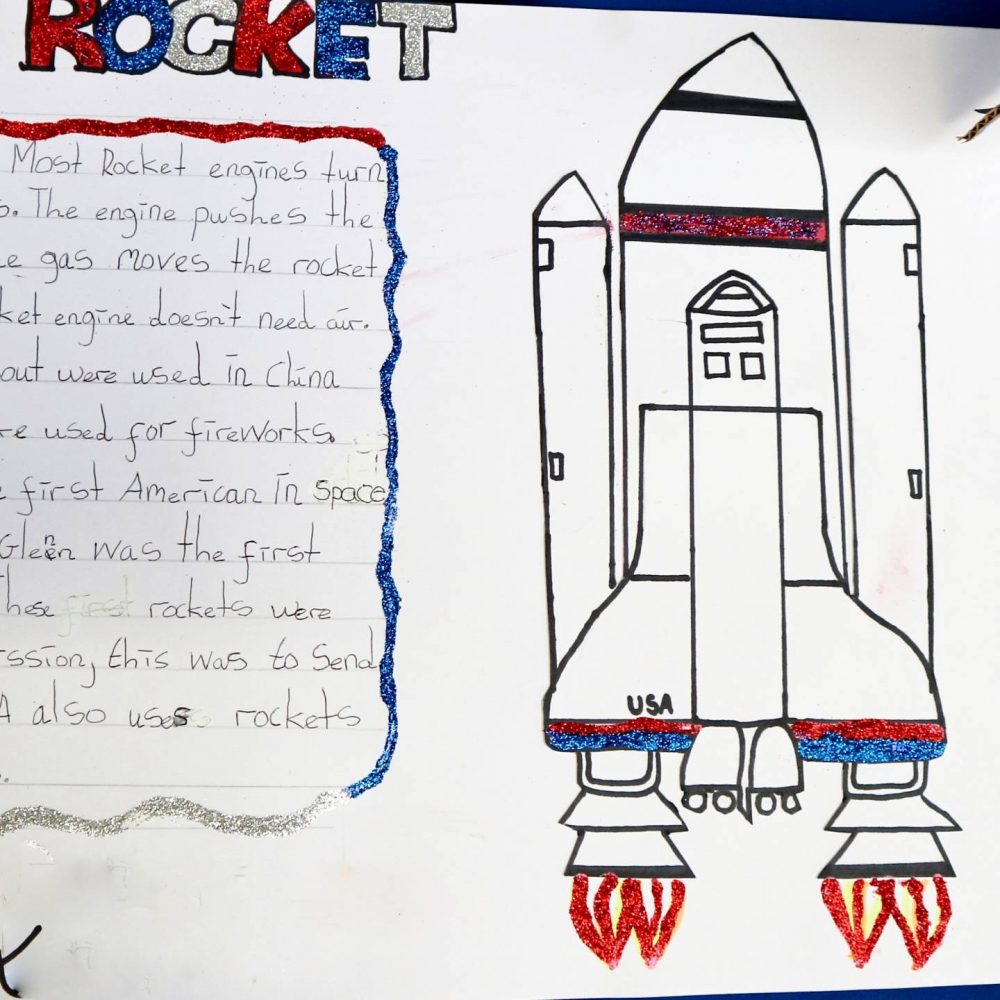 ROCKET
Most Rocket engines turn
. The engine pushes the
gas moves the rocket
ket engine doesn't need air.
out were used in China
re used for fireworks.
first American in space
Glenn was the first
hese first rockets were
ission, this was to Send
A also uses rockets
USA